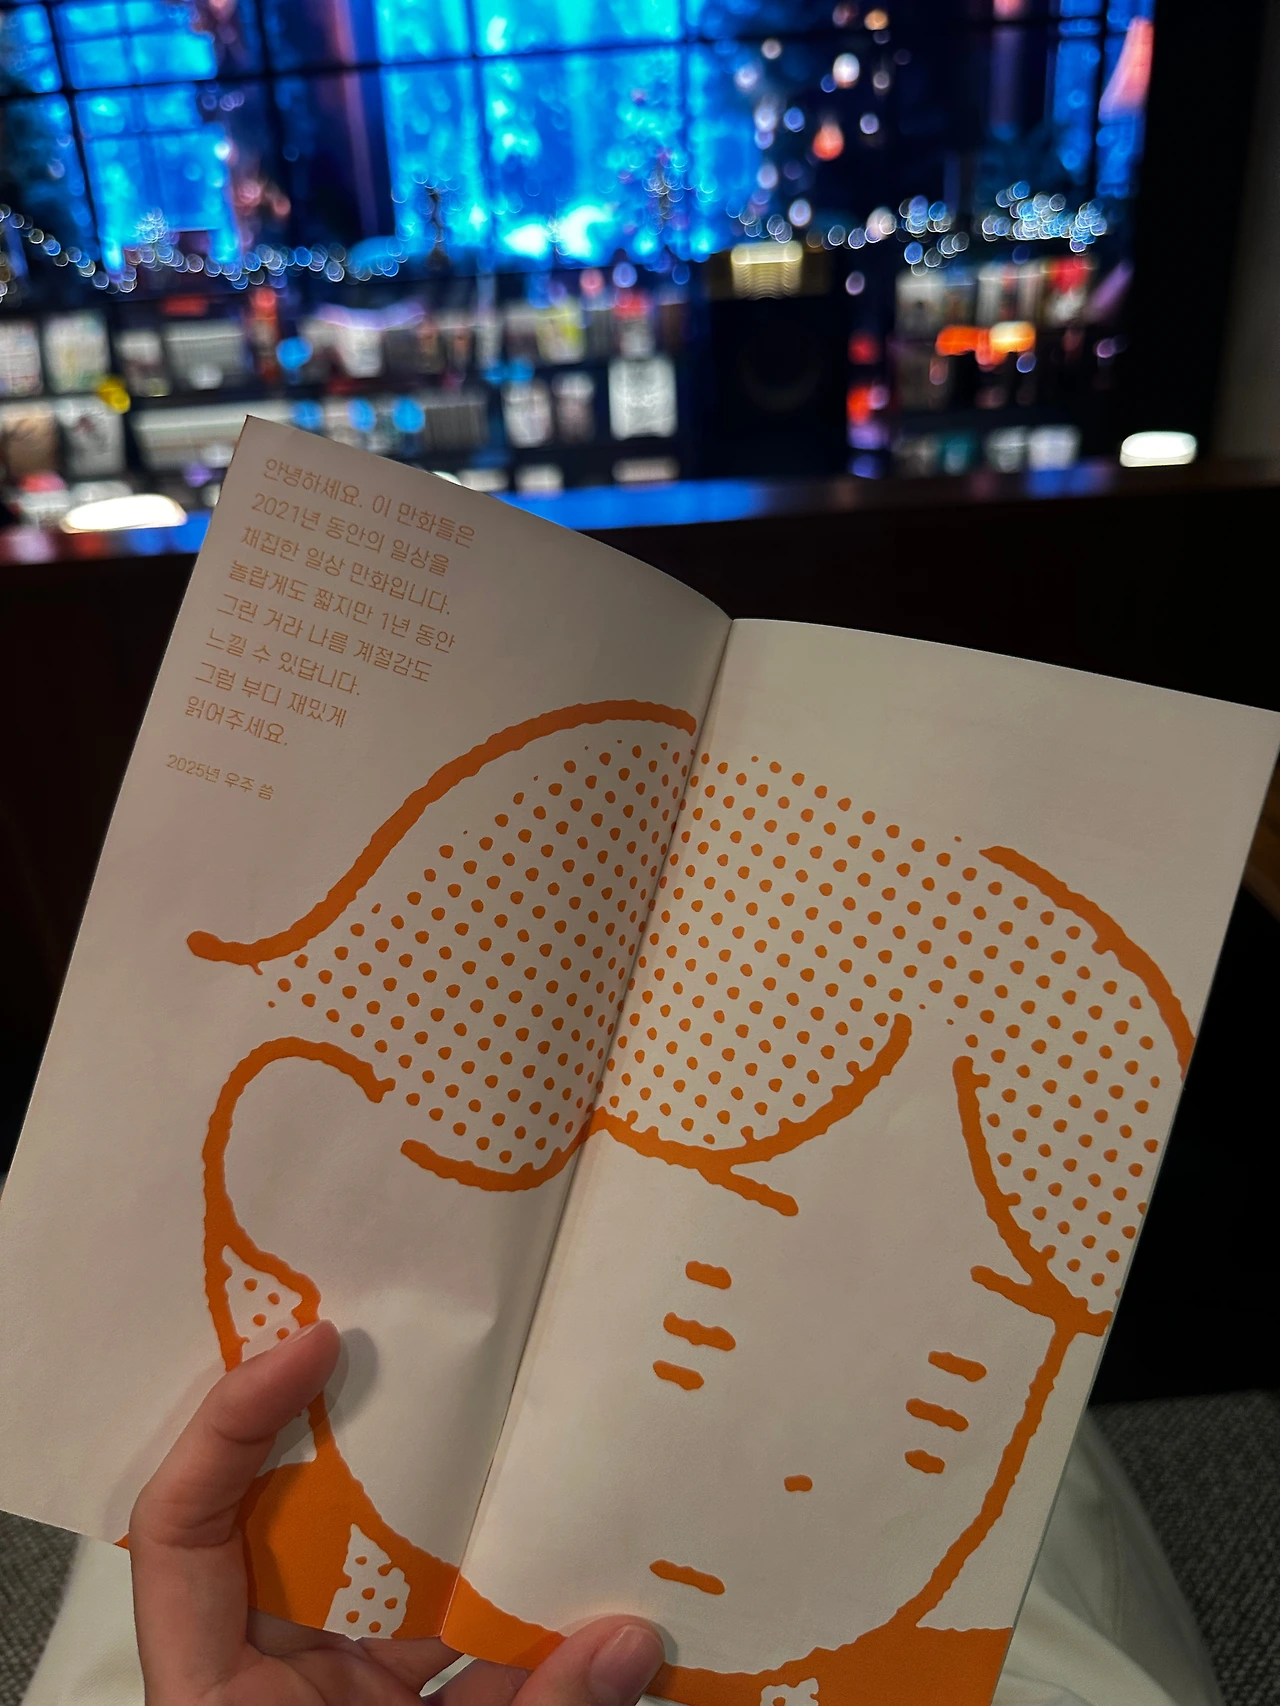 안녕하세요. 이 만화들은
2021년 동안의 일상을
채집한 일상 만화입니다.
놀랍게도 짧지만 1년 동안
그린 거라 나름 계절감도
느낄 수 있답니다.
그럼 부디 재밌게
읽어주세요.
2025년 우주 씀